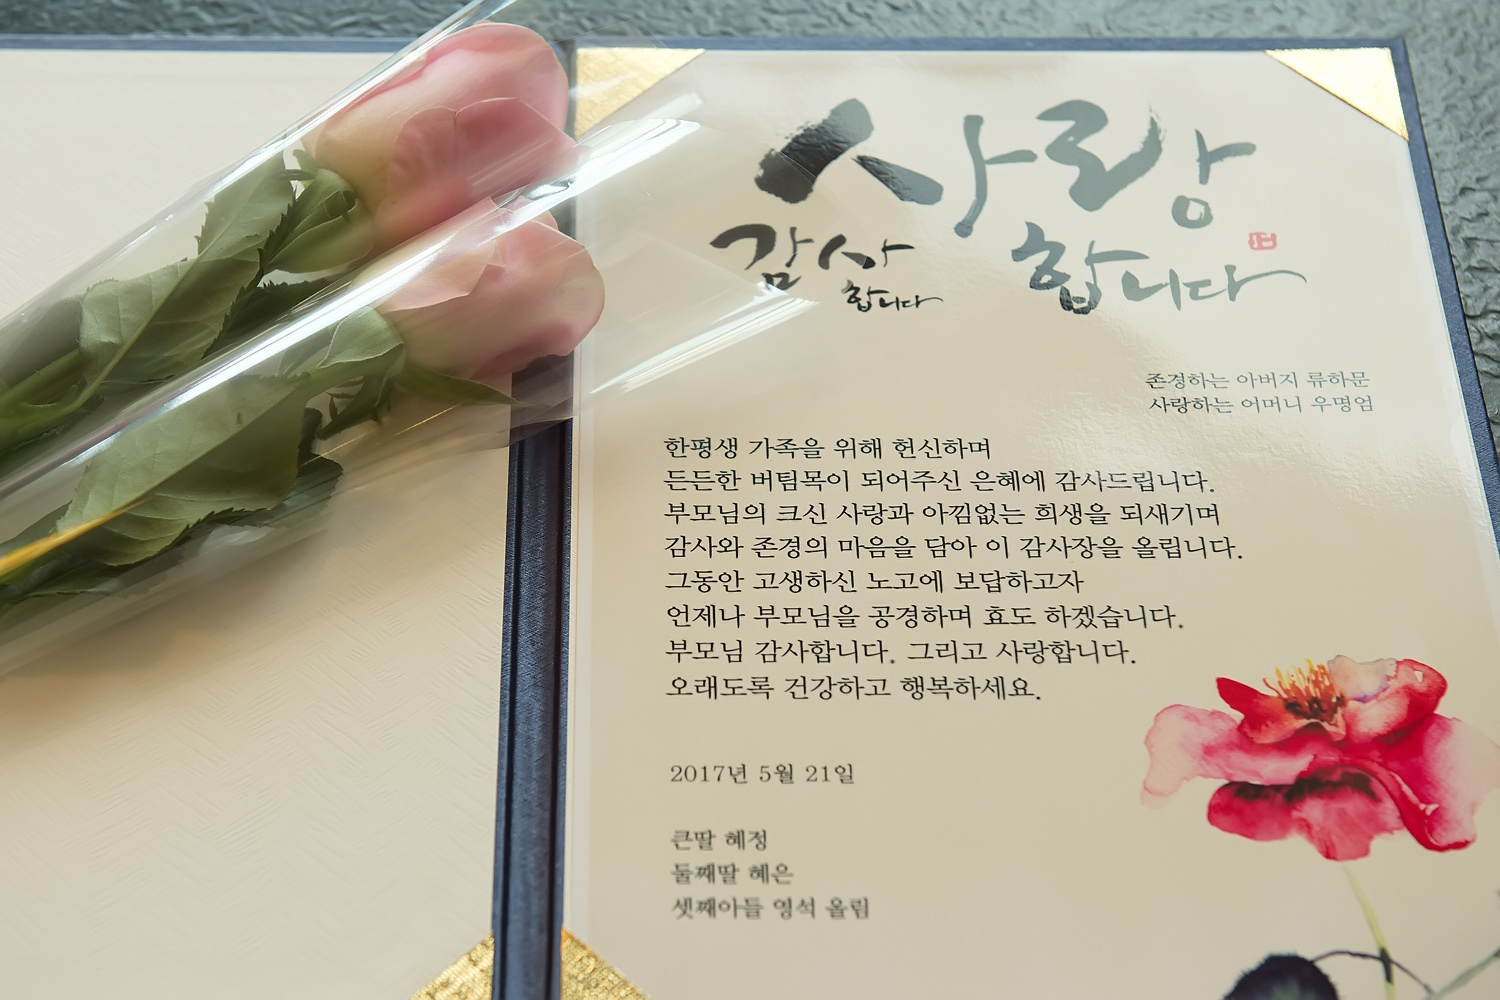 감사합니다
사랑합니다
존경하는 아버지 류하문
사랑하는 어머니 우명엄
한평생 가족을 위해 헌신하며
든든한 버팀목이 되어주신 은혜에 감사드립니다.
부모님의 크신 사랑과 아낌없는 희생을 되새기며
감사와 존경의 마음을 담아 이 감사장을 올립니다.
그동안 고생하신 노고에 보답하고자
언제나 부모님을 공경하며 효도 하겠습니다.
부모님 감사합니다. 그리고 사랑합니다.
오래도록 건강하고 행복하세요.
2017년 5월 21일
큰딸 혜정
둘째딸 혜은
셋째아들 영석 올림